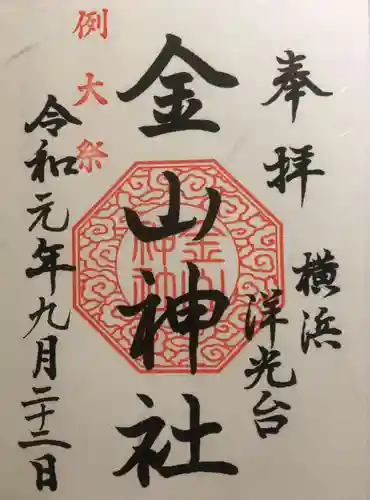 奉拝
横浜
洋光台
金山神社
例大祭
令和元年九月二十二日